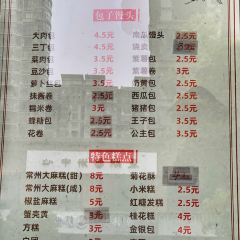 包子馒头
大肉包 4.5元
三丁包 4.5元
菜肉包 3.5元
豆沙包 3.5元
萝卜丝包 3.5元
抹酱卷 2.5元
糯米卷 3元
蜂糖包 2.5元
花卷 2.5元
南瓜馒头 2.5元
烧卖
紫薯包 3.5元
紫薯卷 3元
奶黄包 3.5元
西瓜包 2.5元
猪猪包 2.5元
王子包 3.5元
公主包 3.5元
特色糕点
常州大麻糕(甜) 8元
常州大麻糕(咸) 8元
椒盐麻糕 5元
蟹壳黄 3元
方糕 3元
菊花酥
小米糕 2.5元
红糖发糕 2.5元
桂花糕 4元
金银包 4元